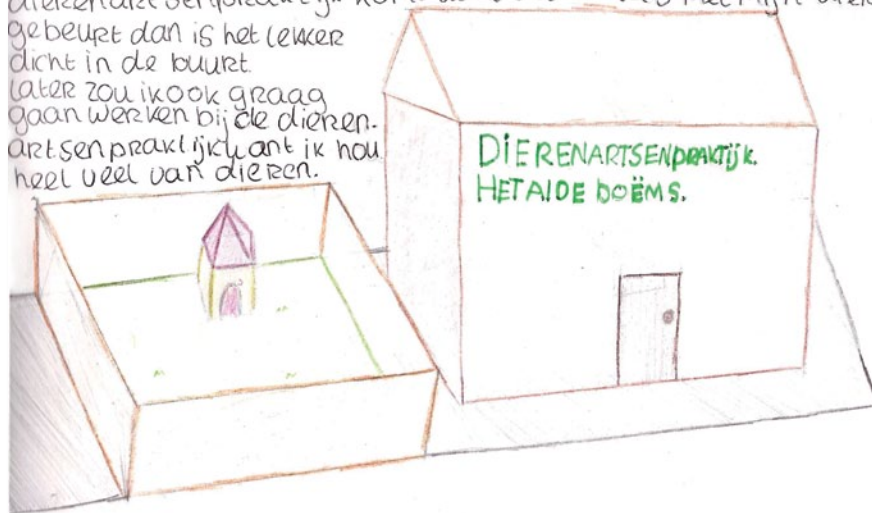 dierenartsenpraktijk
gebeurt dan is het lekker
dicht in de buurt.
later zou ik ook graag
gaan werken bij de dieren.
artsenpraktijk want ik hou
heel veel van dieren.
DiERENARTSENpRAKTijk.
HET AIDE bOËMS.